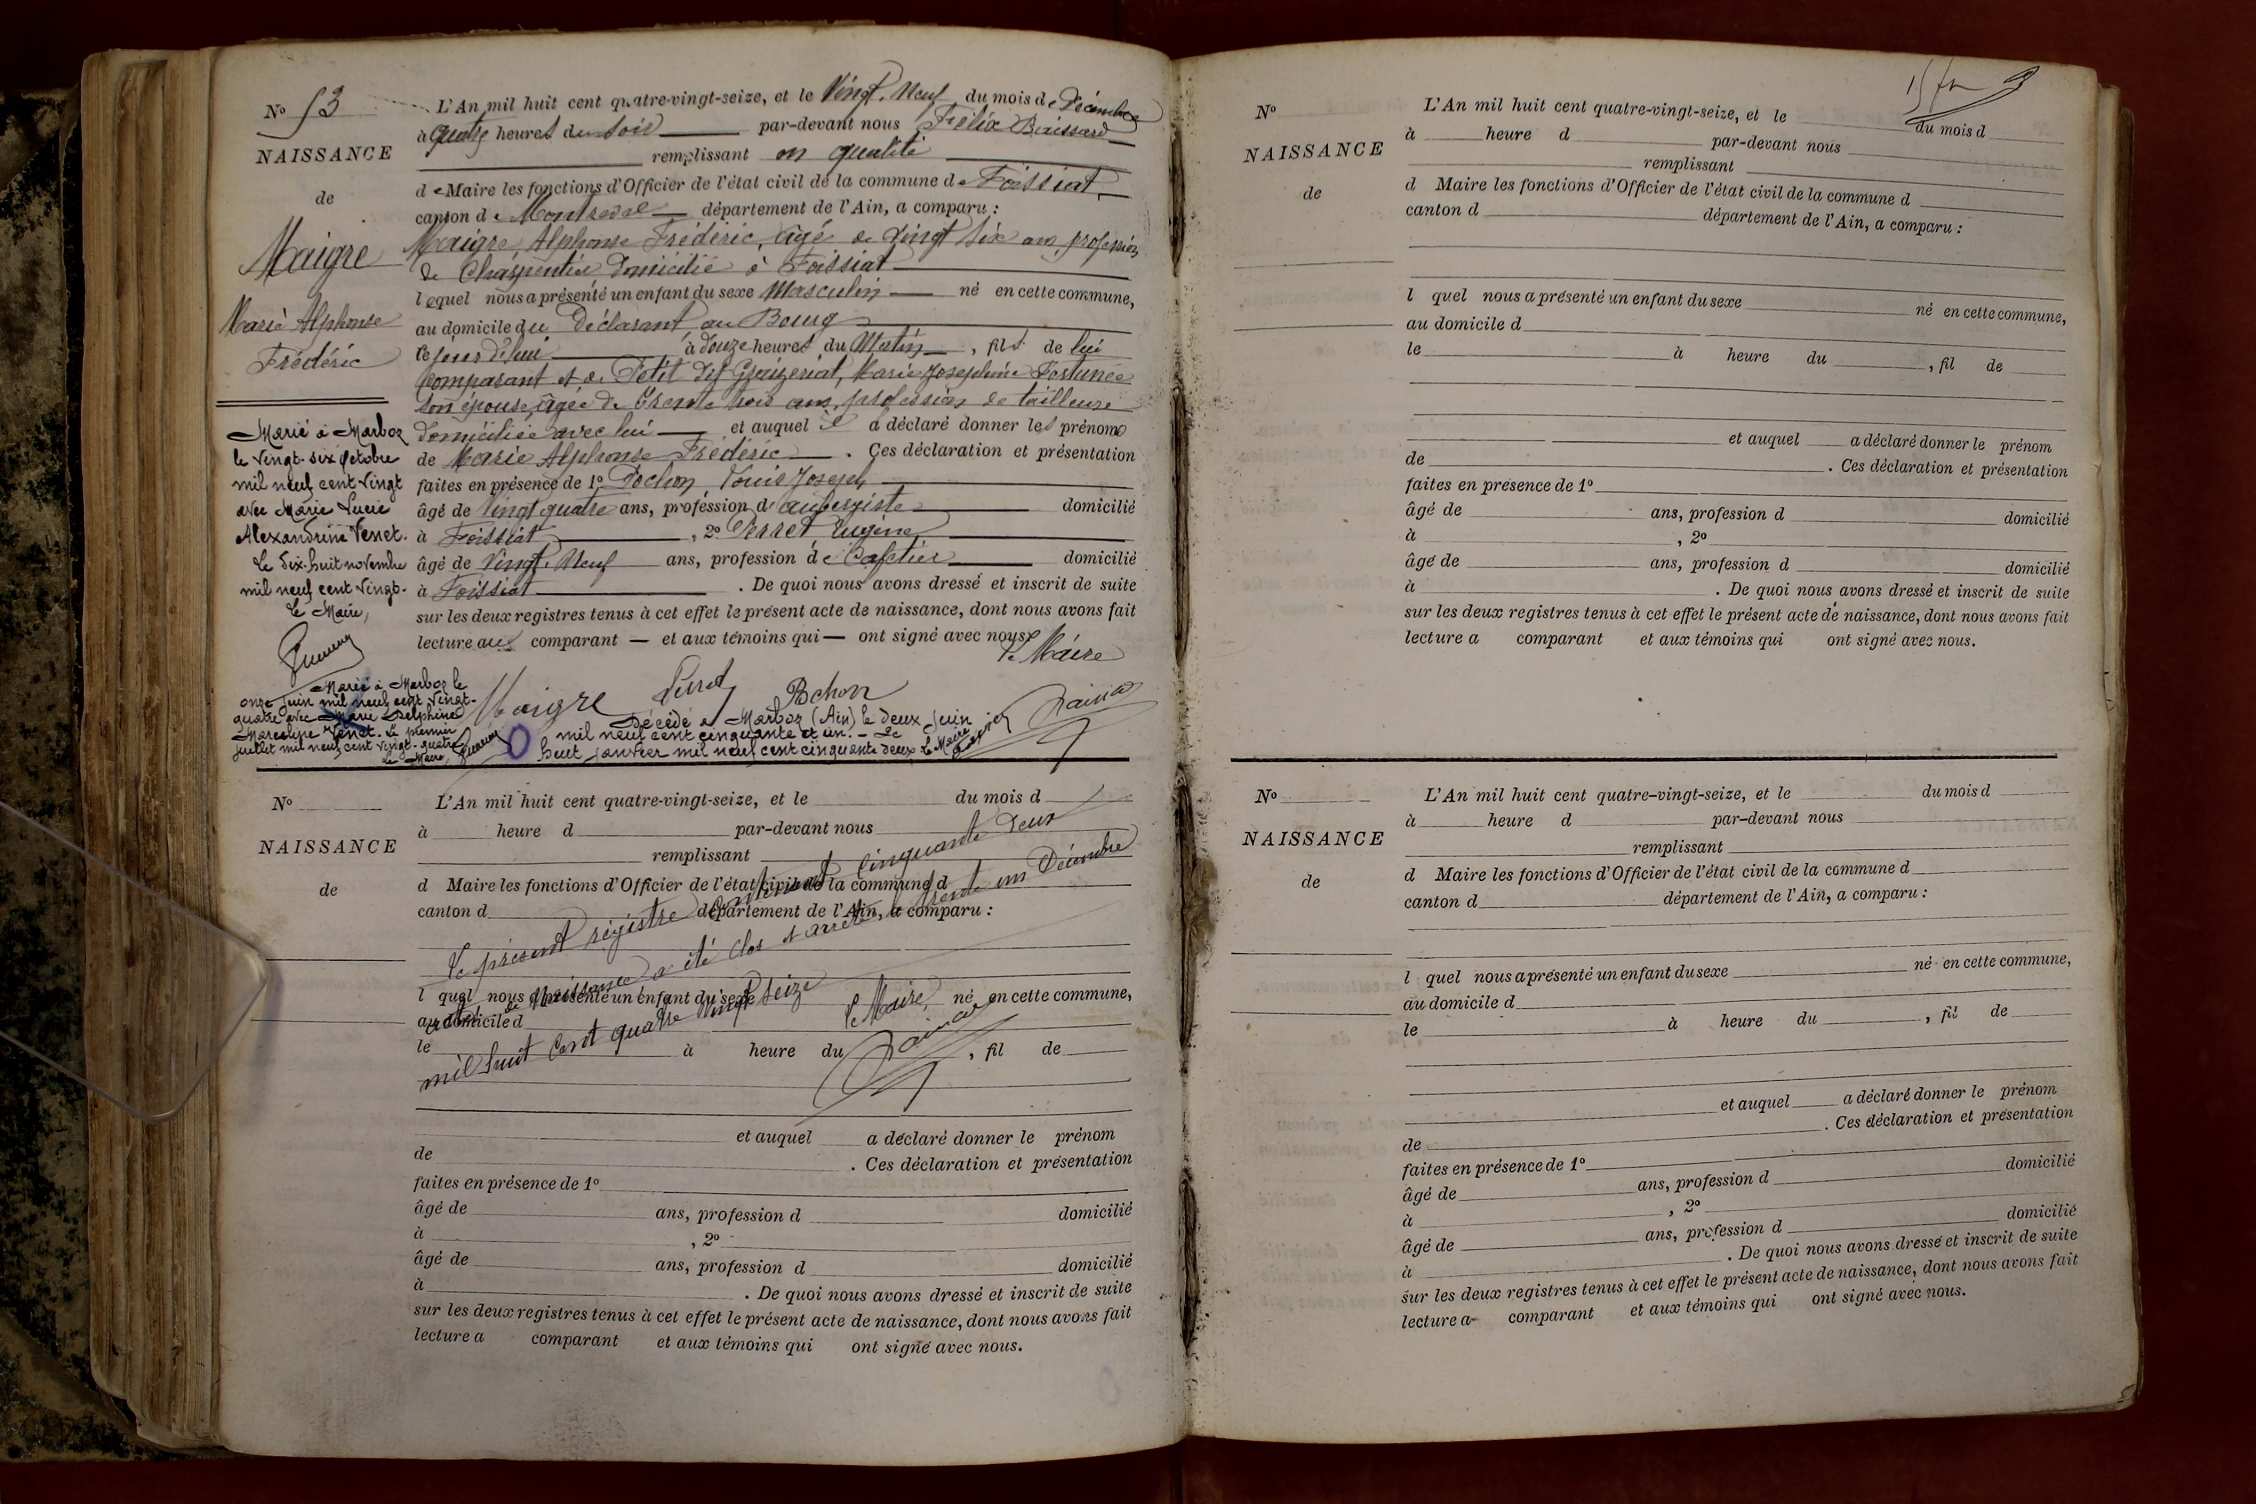 Nº 53
NAISSANCE
de
Maigre
Marie Alphonse
Frédéric
Marié à Marboz
le vingt-six octobre
mil neuf cent vingt
avec Marie Lucie
Alexandrine Venet.
Le dix-huit novembre
mil neuf cent vingt.
Le Maire,
Marié à Marboz le
onze juin mil neuf cent vingt-
quatre avec Marie Delphine
Marceline Venet. Le premier
juillet mil neuf cent vingt-quatre
Le Maire,
L'An mil huit cent quatre-vingt-seize, et le Vingt-Neuf du mois de Décembre
à quatre heures du soir par-devant nous Félix
remplissant en qualité
de Maire les fonctions d'Officier de l'état civil de la commune de Foissiat,
canton de Montrevel département de l'Ain, a comparu :
Maigre, Alphonse Frédéric, âgé de vingt six ans, profession
de Charpentier domicilié à Foissiat
lequel nous a présenté un enfant du sexe Masculin né en cette commune,
au domicile du Déclarant au Bourg
à douze heures du Matin, fils de lui
comparant et de Petit dit Graizeriat, Marie Josephine Fortunée
son épouse, âgée de trente trois ans, profession de tailleuse
domiciliée avec lui et auquel il a déclaré donner les prénoms
de Marie Alphonse Frédéric. Ces déclaration et présentation
faites en présence de 1º Pochon Louis Joseph
âgé de vingt quatre ans, profession d'aubergiste domicilié
à Foissiat, 2º Perret Eugène
âgé de Vingt-Neuf ans, profession de Cafetier domicilié
à Foissiat. De quoi nous avons dressé et inscrit de suite
sur les deux registres tenus à cet effet le présent acte de naissance, dont nous avons fait
lecture aux comparant — et aux témoins qui — ont signé avec nous
Le Maire
Maigre Perret Pochon
Décédé à Marboz (Ain) le deux juin
mil neuf cent cinquante et un. - Le
huit janvier mil neuf cent cinquante deux Le Maire
Nº
NAISSANCE
de
L'An mil huit cent quatre-vingt-seize, et le du mois d
à heure d par-devant nous
remplissant
d Maire les fonctions d'Officier de l'état civil de la commune d
canton d département de l'Ain, a comparu :
l quel nous a présenté un enfant du sexe né en cette commune,
au domicile d
le à heure du , fil de
et auquel a déclaré donner le prénom
de . Ces déclaration et présentation
faites en présence de 1º
âgé de ans, profession d domicilié
à , 2º
âgé de ans, profession d domicilié
à . De quoi nous avons dressé et inscrit de suite
sur les deux registres tenus à cet effet le présent acte de naissance, dont nous avons fait
lecture a comparant et aux témoins qui ont signé avec nous.
Le présent registre contenant cinquante deux
actes de Naissance a été clos et arrêté le trente un Décembre
mil huit cent quatre vingt seize
Le Maire
Nº
NAISSANCE
de
L'An mil huit cent quatre-vingt-seize, et le du mois d
à heure d par-devant nous
remplissant
d Maire les fonctions d'Officier de l'état civil de la commune d
canton d département de l'Ain, a comparu :
l quel nous a présenté un enfant du sexe né en cette commune,
au domicile d
le à heure du , fil de
et auquel a déclaré donner le prénom
de . Ces déclaration et présentation
faites en présence de 1º
âgé de ans, profession d domicilié
à , 2º
âgé de ans, profession d domicilié
à . De quoi nous avons dressé et inscrit de suite
sur les deux registres tenus à cet effet le présent acte de naissance, dont nous avons fait
lecture a comparant et aux témoins qui ont signé avec nous.
Nº
NAISSANCE
de
L'An mil huit cent quatre-vingt-seize, et le du mois d
à heure d par-devant nous
remplissant
d Maire les fonctions d'Officier de l'état civil de la commune d
canton d département de l'Ain, a comparu :
l quel nous a présenté un enfant du sexe né en cette commune,
au domicile d
le à heure du , fil de
et auquel a déclaré donner le prénom
de . Ces déclaration et présentation
faites en présence de 1º
âgé de ans, profession d domicilié
à , 2º
âgé de ans, profession d domicilié
à . De quoi nous avons dressé et inscrit de suite
sur les deux registres tenus à cet effet le présent acte de naissance, dont nous avons fait
lecture a comparant et aux témoins qui ont signé avec nous.